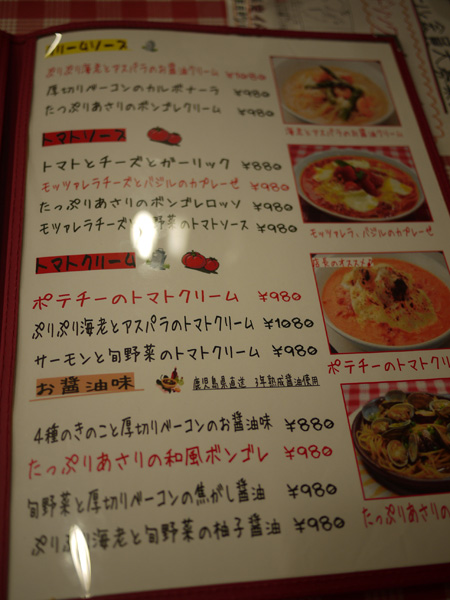 クリームソース
ぷりぷり海老とアスパラのお醤油クリーム ¥1080
厚切りベーコンのカルボナーラ ¥980
たっぷりあさりのボンゴレクリーム ¥980
海老とアスパラのお醤油クリーム
トマトソース
トマトとチーズとガーリック ¥880
モッツァレラチーズとバジルのカプレーゼ ¥980
たっぷりあさりのボンゴレロッソ ¥980
モツァレラチーズ 野菜のトマトソース ¥980
モッツァレラ、バジルのカプレーゼ
トマトクリーム
店長のオススメ♪
ポテチーのトマトクリーム ¥980
ぷりぷり海老とアスパラのトマトクリーム ¥1080
サーモンと旬野菜のトマトクリーム ¥980
ポテチーのトマトクリ
お醤油味
鹿児島県直送 3年熟成醤油使用
4種のきのこと厚切りベーコンのお醤油味 ¥880
たっぷりあさりの和風ボンゴレ ¥980
旬野菜と厚切りベーコンの焦がし醤油 ¥980
ぷりぷり海老と旬野菜の柚子醤油 ¥980
たっぷりあさりの